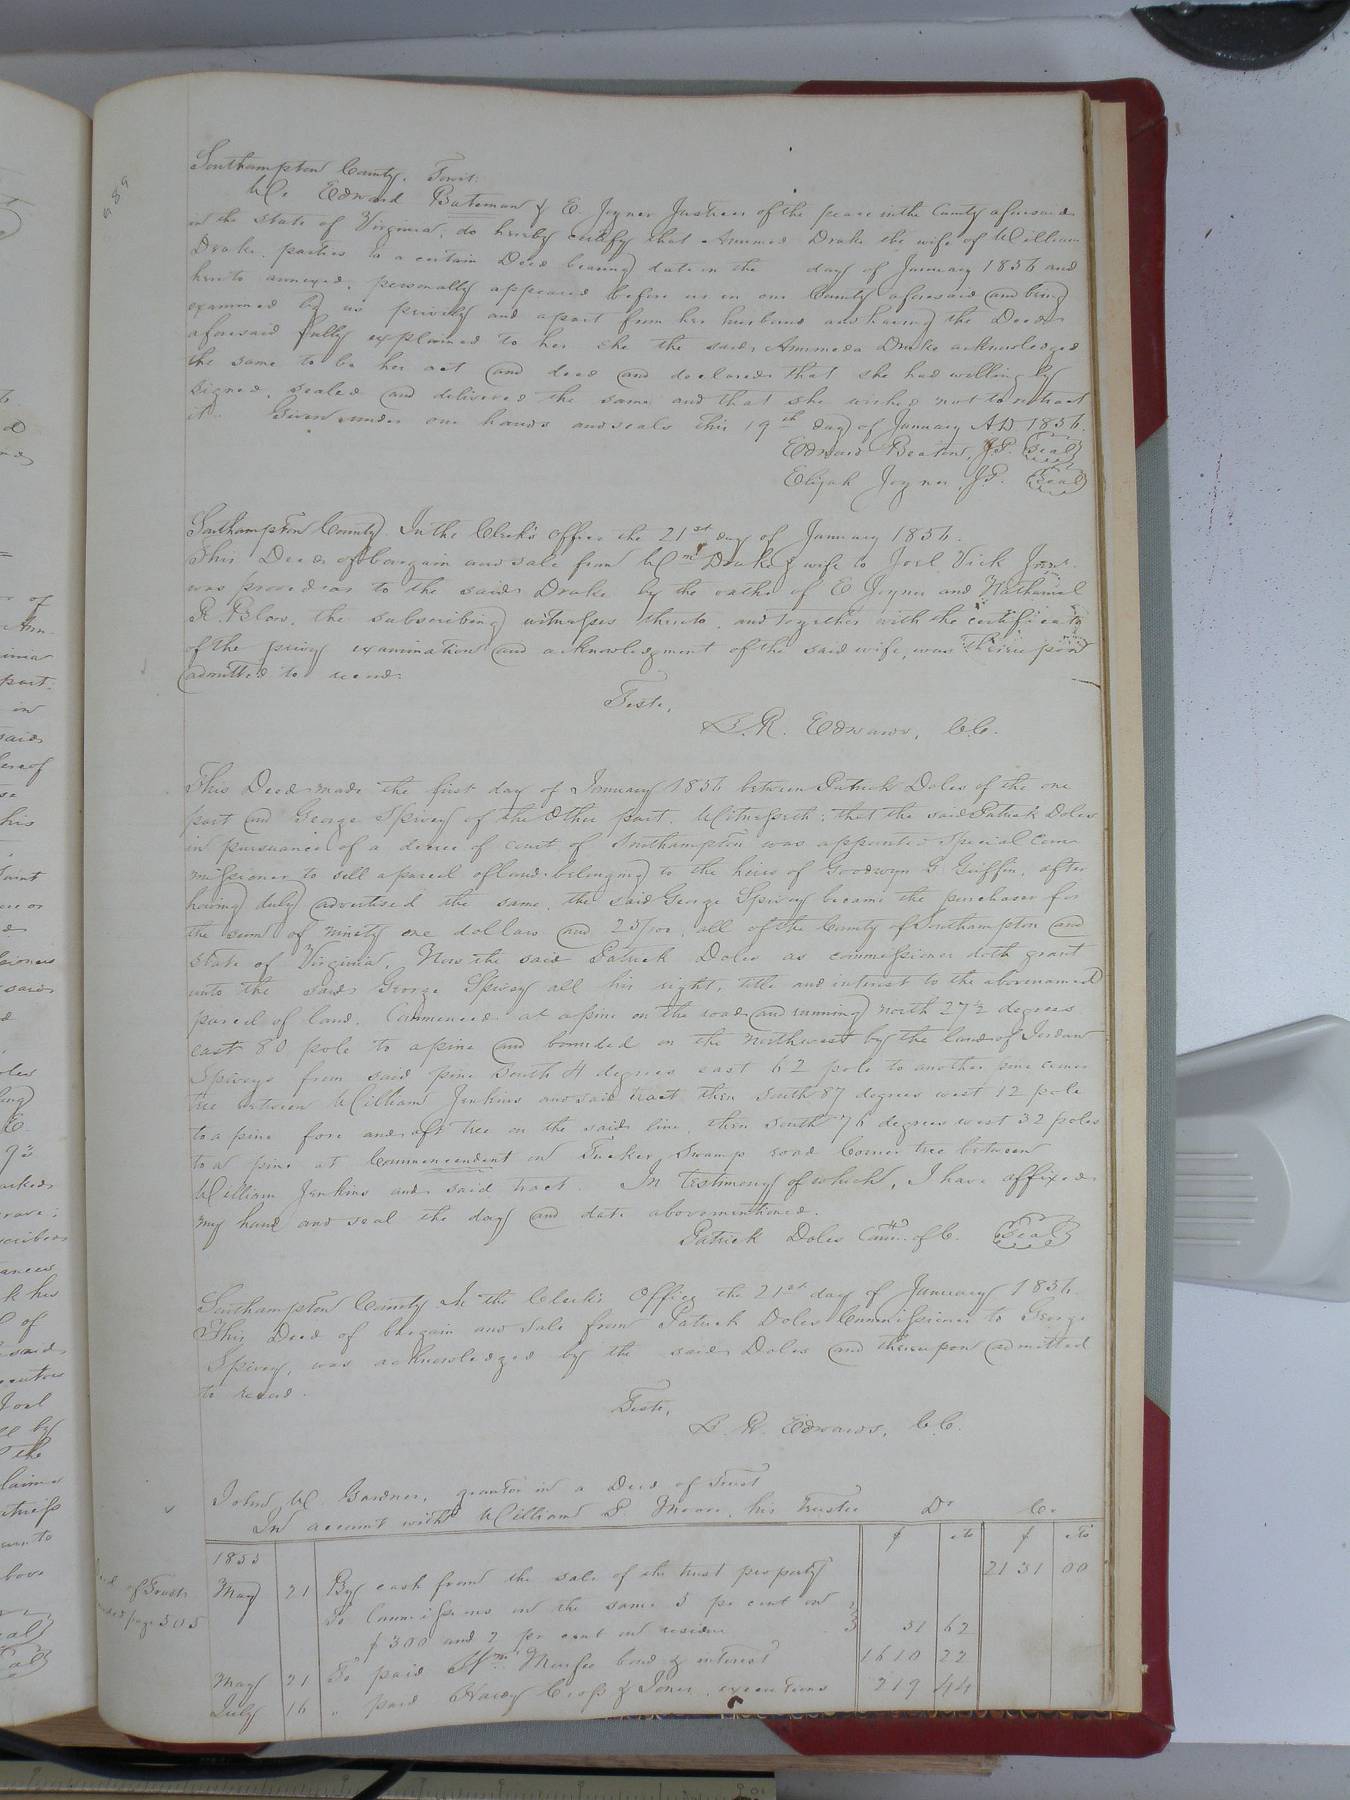 Southampton County. Towit:
We Edward Bateman & E. Joyner Justices of the peace in the County aforesaid
in the State of Virginia, do hereby certify that Ammeda Drake the wife of William
Drake, parties to a certain Deed bearing date on the day of January 1856 and
hereto annexed, personally appeared before us in our County aforesaid and being
examined by us privily and apart from her husband and having the Deed
aforesaid fully explained to her she the said Ammeda Drake acknowledged
the same to be her act and deed and declared that she had willingly
signed, sealed and delivered the same and that she wished not to retract
it. Given under our hands and seals this 19th day of January AD 1856.
Edward Beaton, J.P. Seal
Elijah Joyner, J.P. Seal
Southampton County In the Clerk's Office the 21st day of January 1856.
This Deed of bargain and sale from Wm Drake & wife to Joel Vick
was proved as to the said Drake by the oaths of E Joyner and Nathaniel
R. Blow, the subscribing witnesses thereto, and together with the certificate
of the privy examination and acknowledgment of the said wife, was thereupon
admitted to record.
Teste,
L. R. Edwards, C.C.
This Deed made the first day of January 1856 between Patrick Doles of the one
part and George Spivey of the Other part. Witnesseth: that the said Patrick Doles
in pursuance of a decree of court of Southampton was appointed Special Com
missioner to sell a parcel of land belonging to the heirs of Goodwyn G. Griffin, after
having duly advertised the same, the said George Spivey became the purchaser for
the sum of Ninety one dollars and 25/100, all of the County of Southampton and
State of Virginia, Now the said Patrick Doles as commissioner doth grant
unto the said George Spivey all his right, title and interest to the abovenamed
parcel of land. Commenced at a pine on the road and running north 27½ degrees
east 80 pole to a pine and bounded on the Northwest by the land of Jordan
Spiveys from said pine South 4 degrees east 62 pole to another pine corner
tree between William Jenkins and said tract then South 87 degrees west 12 pole
to a pine fore and aft tree on the said line, then South 76 degrees west 32 poles
to a pine at Commencement on Tucker Swamp road Corner tree between
William Jenkins and said tract. In testimony of which, I have affixed
my hand and seal the day and date abovementioned.
Patrick Doles Comr. of C. Seal
Southampton County In the Clerk's Office the 21st day of January 1856.
This Deed of bargain and Sale from Patrick Doles Commissioner to George
Spivey, was acknowledged by the said Doles and thereupon admitted
to record.
Teste,
L. R. Edwards, C.C.
John W. Gardner, grantor in a Deed of Trust
In account with William S. Moore, his Trustee Dr Cr
$ cts $ cts
1855
May 21 By cash from the sale of the trust property 2131 00
To Commissions on the same 5 per cent on
$300 and 2 per cent on residue 51 62
May 21 To paid Murfee bond & interest 1610 22
July 16 " paid Cross & Jones, executions 219 44
of Trust
page 505